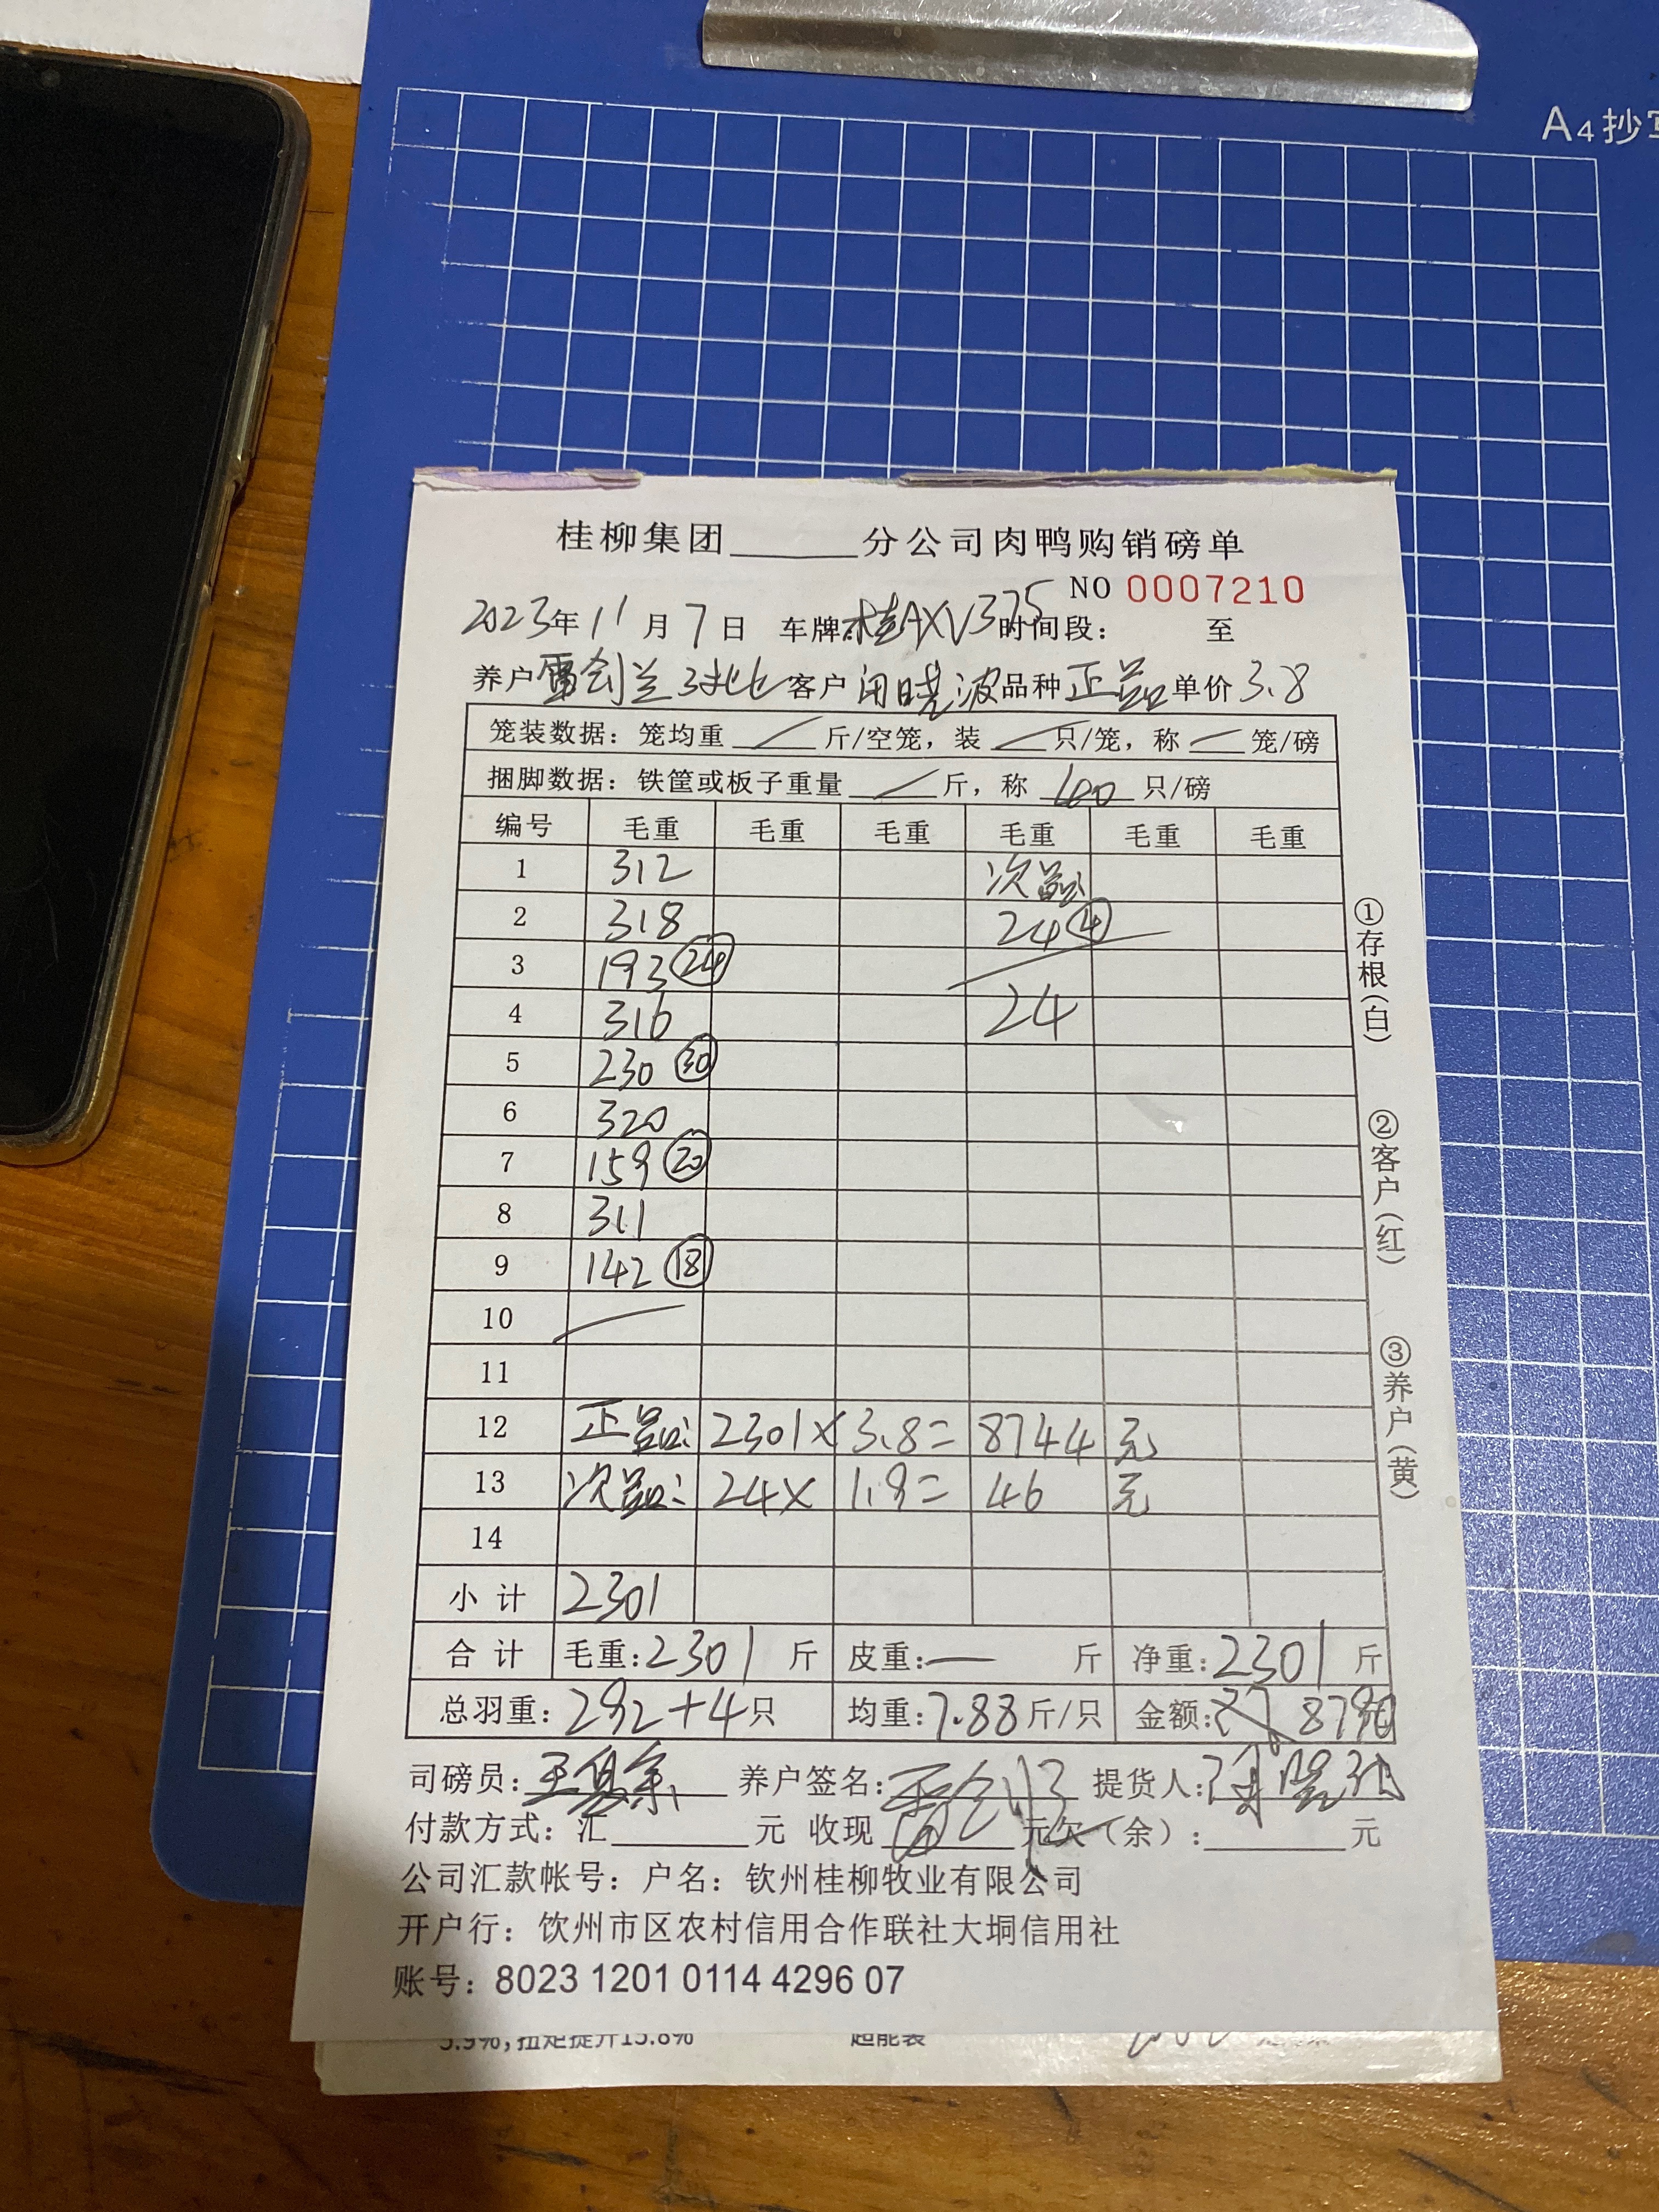 A4抄写
桂柳集团______分公司肉鸭购销磅单
NO 0007210
2023年11月7日 车牌:桂AXV375 时间段: 至
养户 雷剑兰3北 客户 闭晓波 品种 正品 单价 3.8
笼装数据:笼均重 / 斤/空笼,装 / 只/笼,称 / 笼/磅
捆脚数据:铁筐或板子重量 / 斤,称 40 只/磅
编号 毛重 毛重 毛重 毛重 毛重 毛重
1 312 次品:
2 318 24 ④
3 193 ㉔
4 316 24
5 230 ㉚
6 320
7 159 ⑳
8 311
9 142 ⑱
10
11
12 正品: 2301× 3.8= 8744 元
13 次品: 24× 1.9= 46 元
14
小计 2301
合计 毛重:2301 斤 皮重:— 斤 净重:2301 斤
总羽重:292+4只 均重:7.88斤/只 金额: 8790
司磅员: 养户签名: 提货人:
付款方式:汇______元 收现______元欠(余):______元
公司汇款帐号:户名:钦州桂柳牧业有限公司
开户行:饮州市区农村信用合作联社大垌信用社
账号:8023 1201 0114 4296 07
①存根(白) ②客户(红) ③养户(黄)
5.9%,扭矩提升15.8% 超能装